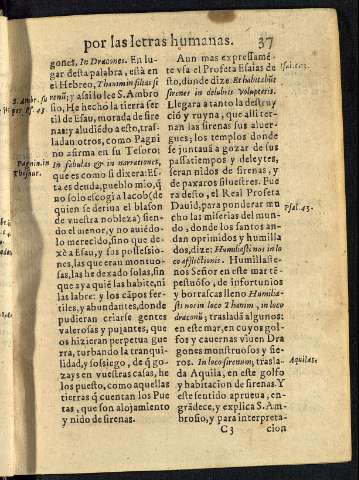 por las letras humanas. 37
gones, In Dracones. En lu-
gar desta palabra, està en
el Hebreo, Thannim filias se
renũ; y assi lo lee S. Ambro
sio, He hechó la tierra fer
til de Esau, morada de sire
nas: y aludiẽdo a esto, tras-
ladan otros, como Pagni
no afirma en su Tesoro:
in fabulas & in narrationes,
que es como si dixera: Es-
ta es deuda, pueblo mio, q̃
no solo escogi a Iacob (de
quien se deriua el blason
de vuestra nobleza) sien-
do el menor, y no auiẽdo-
lo merecido, sino que de-
xè a Esau, y sus possessio-
nes, las que eran montuo-
sas, las he dexado solas, sin
que aya quiẽ las habite, ni
las labre: y los cãpos fer-
tiles, y abundantes, donde
pudieran criarse gentes
valerosas y pujantes, que
os hizieran perpetua gue
rra, turbando la tranqui-
lidad, y sossiego, de q̃ go-
zays en vuestras casas, he
los puesto, como aquellas
tierras q̃ cuentan los Poe
tas, que son alojamiento
y nido de sirenas.
S. Ambr. su
per Ps. 43
Pagnin. in
Thesaur.
Aun mas expressamẽ-
te vsa el Profeta Esaias de
sto, donde dize Et habitabũt
sirenes in delubris voluptatis.
Llegara a tanto la destruy
ció y ruyna, que alli ter-
nan las sirenas sus aluer-
gues; los templos donde
se juntauã a gozar de sus
passatiempos y deleytes,
seran nidos de sirenas, y
de paxaros siluestres. Pue
ra desto, el Real Profeta
Dauid, para ponderar mu
cho las miserias del mun-
do, donde los santos an-
dan oprimidos y humilla
dos, dize: Humiliasti nos in lo
co afflictionis. Humillaste-
nos Señor en este mar tẽ-
pestuoso, de infortunios
y borrascas lleno Humilia-
sti nos in loco Thannim, in loco
draconũ; trasladã algunos:
en este mar, en cuyos gol-
fos y cauernas viuen Dra
gones monstruosos y fie-
ros. In loco sirenum, trasla-
da Aquila, en este golfo
y habitacion de sirenas. Y
este sentido aprueua, en-
grãdece, y explica S. Am-
brosio, y para interpreta-
C3 cion
Psal. 43.
Aquilas.